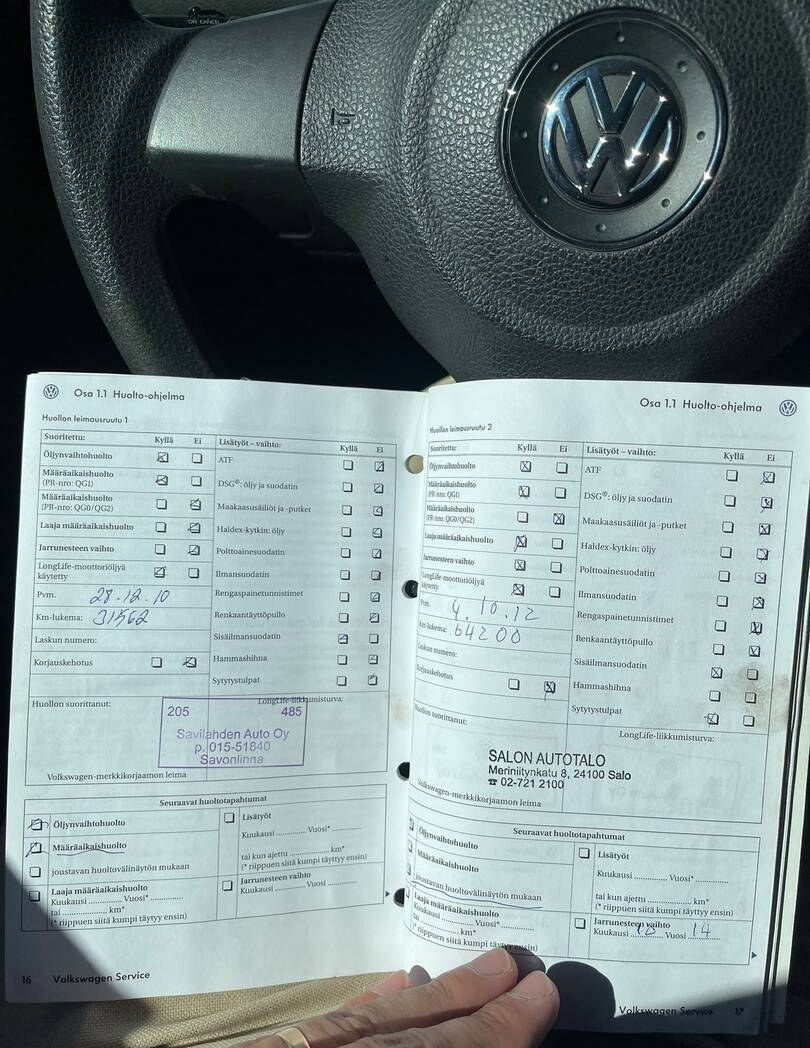 ON CANCEL
Osa 1.1 Huolto-ohjelma
Huollon leimausruutu 1
Suoritettu: Kyllä Ei
Öljynvaihtohuolto
Määräaikaishuolto
(PR-nro: QG1)
Määräaikaishuolto
(PR-nro: QG0/QG2)
Laaja määräaikaishuolto
Jarrunesteen vaihto
LongLife-moottoriöljyä
käytetty
Pvm. 28.12.10
Km-lukema: 31562
Laskun numero:
Korjauskehotus
Lisätyöt – vaihto: Kyllä Ei
ATF
DSG®: öljy ja suodatin
Maakaasusäiliöt ja -putket
Haldex-kytkin: öljy
Polttoainesuodatin
Ilmansuodatin
Rengaspainetunnistimet
Renkaantäyttöpullo
Sisäilmansuodatin
Hammashihna
Sytytystulpat
Huollon suorittanut:
LongLife-liikkumisturva:
205 485
Savilahden Auto Oy
p. 015-51840
Savonlinna
Volkswagen-merkkikorjaamon leima
Seuraavat huoltotapahtumat
Öljynvaihtohuolto
Määräaikaishuolto
joustavan huoltovälinäytön mukaan
Laaja määräaikaishuolto
Kuukausi .............. Vuosi* ..............
tai .............. km*
(* riippuen siitä kumpi täytyy ensin)
Lisätyöt
Kuukausi .............. Vuosi* ..............
tai kun ajettu .............. km*
(* riippuen siitä kumpi täytyy ensin)
Jarrunesteen vaihto
Kuukausi .............. Vuosi ..............
16 Volkswagen Service
Osa 1.1 Huolto-ohjelma
Huollon leimausruutu 2
Suoritettu: Kyllä Ei
Öljynvaihtohuolto
Määräaikaishuolto
(PR-nro: QG1)
Määräaikaishuolto
(PR-nro: QG0/QG2)
Laaja määräaikaishuolto
Jarrunesteen vaihto
LongLife-moottoriöljyä
käytetty
Pvm. 4.10.12
Km-lukema: 64200
Laskun numero:
Korjauskehotus
Lisätyöt – vaihto: Kyllä Ei
ATF
DSG®: öljy ja suodatin
Maakaasusäiliöt ja -putket
Haldex-kytkin: öljy
Polttoainesuodatin
Ilmansuodatin
Rengaspainetunnistimet
Renkaantäyttöpullo
Sisäilmansuodatin
Hammashihna
Sytytystulpat
Huollon suorittanut:
LongLife-liikkumisturva:
SALON AUTOTALO
Meriniitynkatu 8, 24100 Salo
☎ 02-721 2100
Volkswagen-merkkikorjaamon leima
Seuraavat huoltotapahtumat
Öljynvaihtohuolto
Määräaikaishuolto
joustavan huoltovälinäytön mukaan
Laaja määräaikaishuolto
Kuukausi .............. Vuosi* ..............
tai .............. km*
(* riippuen siitä kumpi täytyy ensin)
Lisätyöt
Kuukausi .............. Vuosi* ..............
tai kun ajettu .............. km*
(* riippuen siitä kumpi täytyy ensin)
Jarrunesteen vaihto
Kuukausi 10 Vuosi 14
Volkswagen Service 17